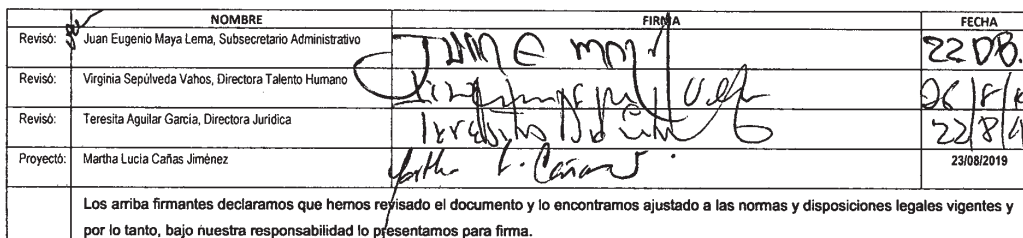 NOMBRE FIRMA FECHA
Revisó: Juan Eugenio Maya Lema, Subsecretario Administrativo
Revisó: Virginia Sepúlveda Vahos, Directora Talento Humano
Revisó: Teresita Aguilar García, Directora Jurídica 22/8/
Proyectó: Martha Lucia Cañas Jiménez Martha L. Cañas J. 23/08/2019
Los arriba firmantes declaramos que hemos revisado el documento y lo encontramos ajustado a las normas y disposiciones legales vigentes y
por lo tanto, bajo nuestra responsabilidad lo presentamos para firma.